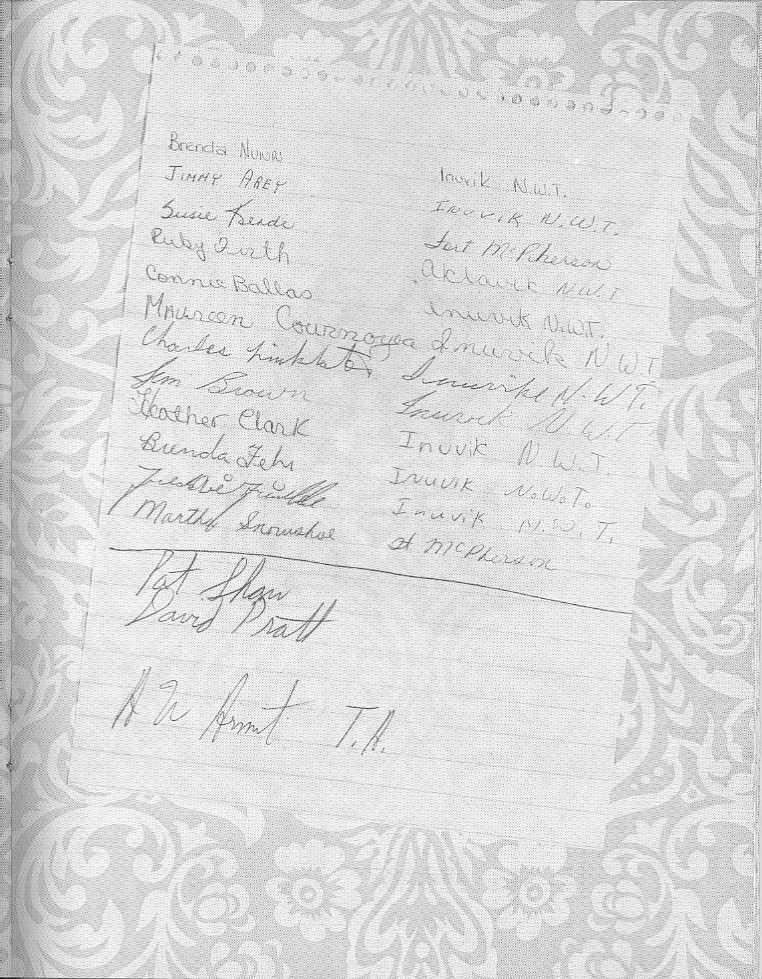 Brenda Inuvik N.W.T.
JIMMY AREY INUVIK N.W.T.
Susie Fort McPherson
Ruby Firth Aklavik N.W.T
Connie Ballas Inuvik N.W.T.
Maureen Cournoyea Inuvik N W T
Charles Inuvike N.W.T.
Jim Brown Inuvik N.W.T
Heather Clark Inuvik N.W.T.
Brenda Fehr Inuvik N.W.T.
Inuvik N.W.T.
Martha Snowshoe Ft McPherson
Pat Shaw
David Pratt
A W Armit T.A.